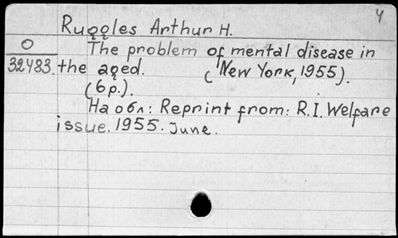 4
Ruggles Arthur H.
О The problem of mental disease in
32483. the aged. (New York, 1955).
(6p.).
На обл: Reprint from: R.I. Welfare
issue. 1955. June.